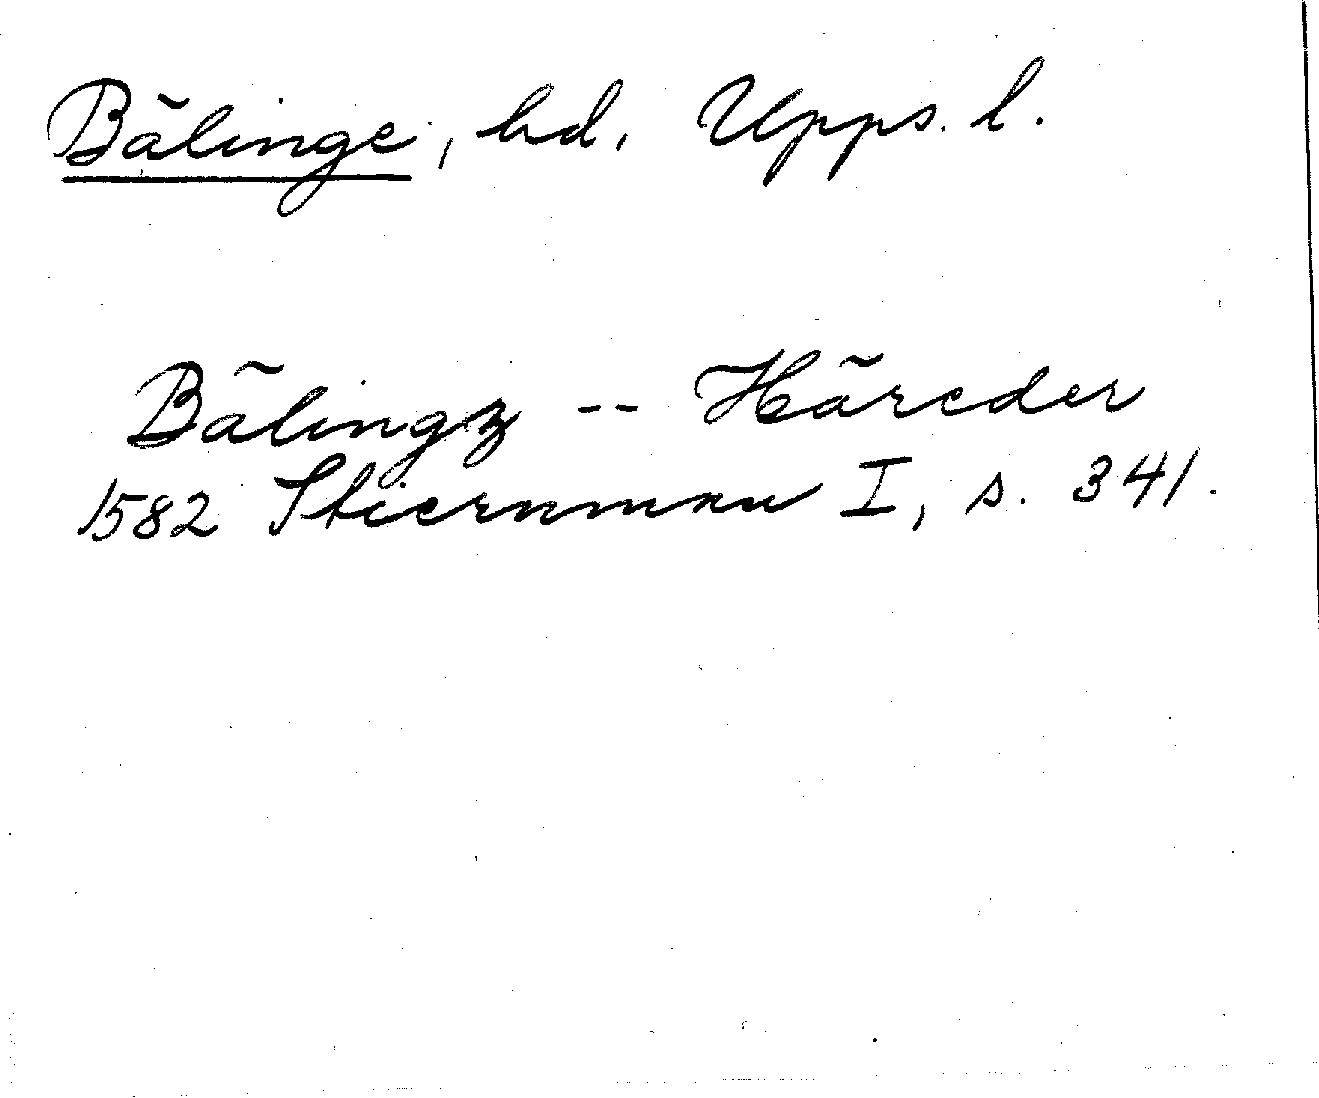 Bälinge, hd. Upps. l.
Bälingz -- Häreder
1582 Stiernman I, s. 341.